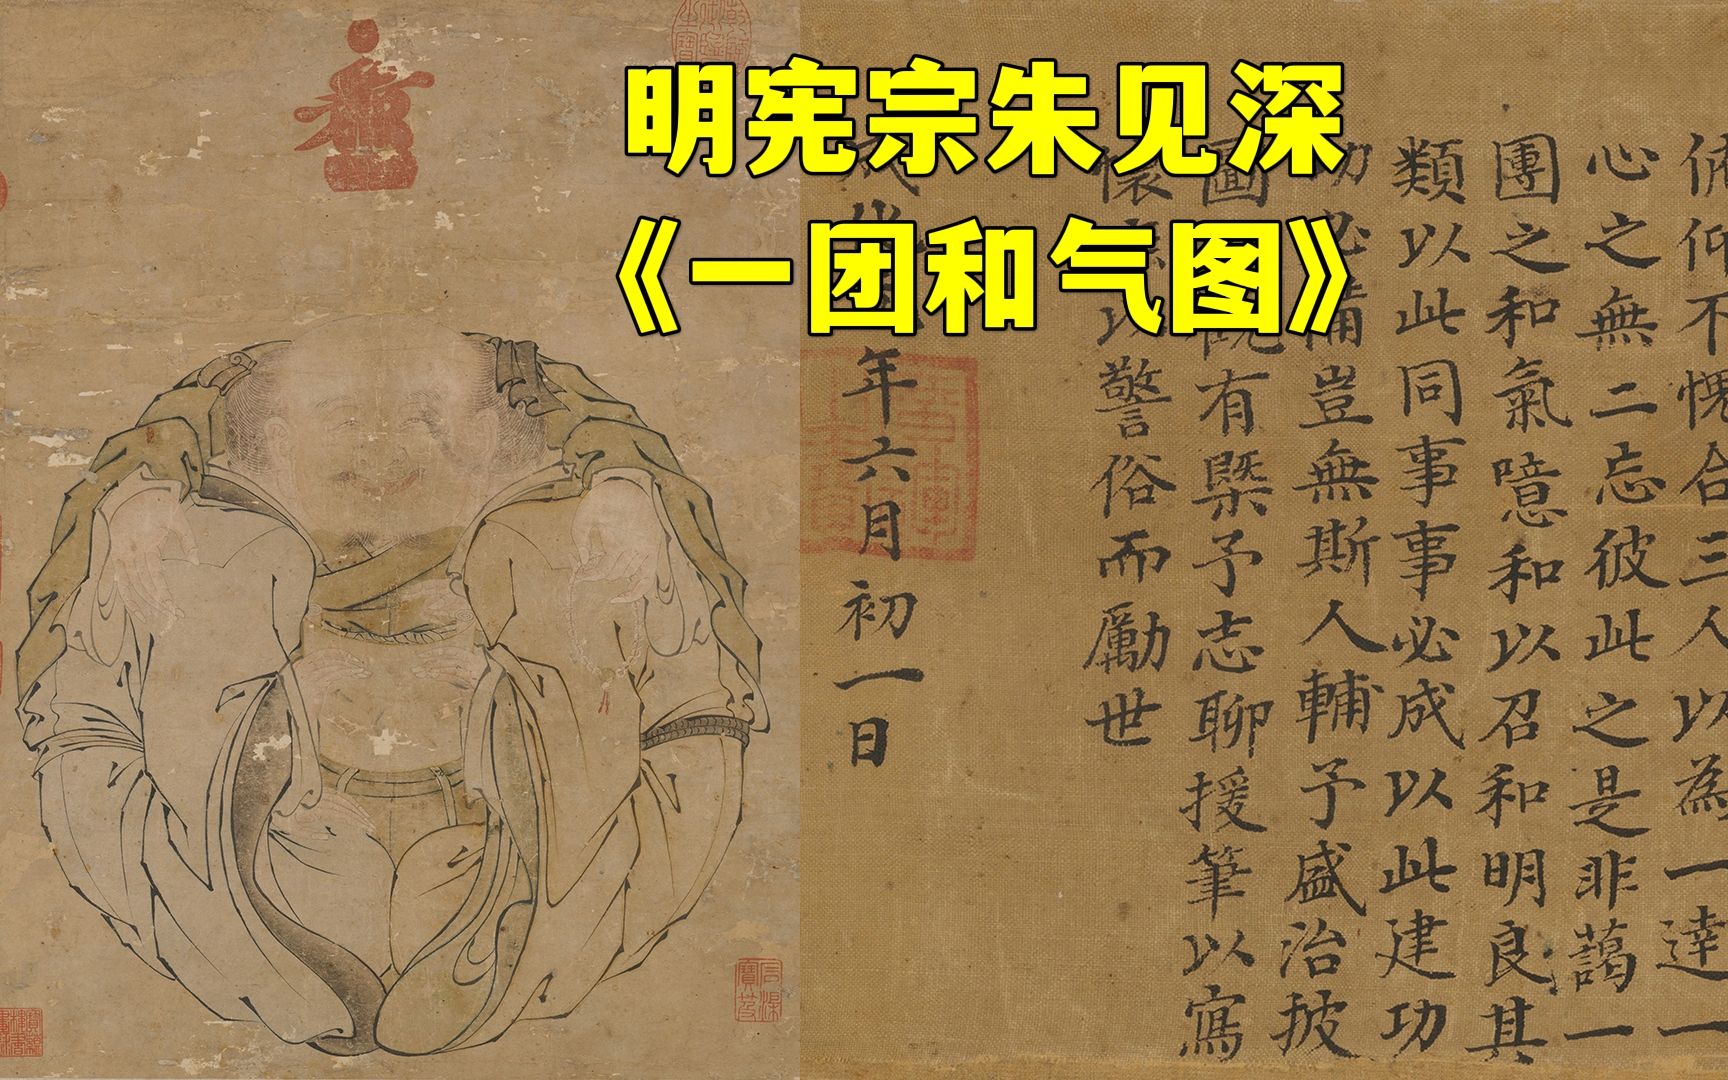 明宪宗朱见深
《一团和气图》
俯仰不愧合三人以為一達一
心之無二忘彼此之是非藹一
團之和氣噫和以召和明良其
類以此同事事必成以此建功
功必備豈無斯人輔予盛治披
圖觀有槩予志聊援筆以寫
懷以警俗而勵世
年六月初一日